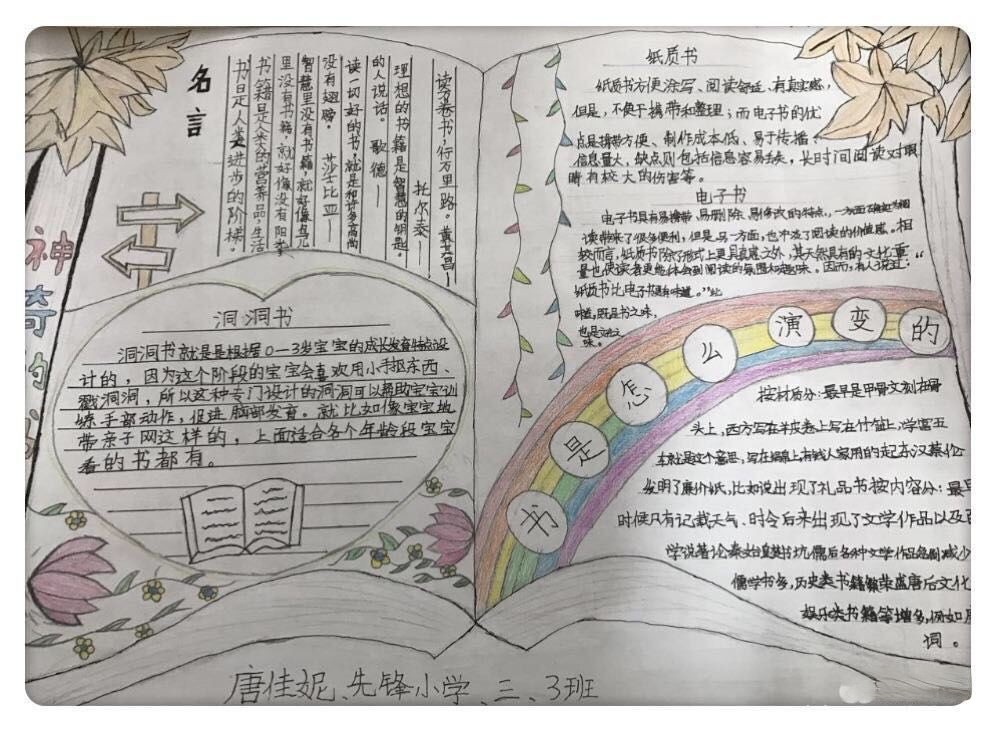 神奇的
名言
读万卷书,行万里路。黄其昌——
托尔泰——
理想的书籍是智慧的钥匙。
的人说话。 歌德——
读一切好的书,就是和许多高尚
没有翅膀。 莎士比亚——
智慧里没有书籍,就好像鸟儿
里没有书籍,就好像没有阳光
书籍是人类的营养品,生活
书日是人类进步的阶梯。
洞洞书
洞洞书就是是根据0—3岁宝宝的成长发育特点设
计的,因为这个阶段的宝宝会喜欢用小手抠东西、
戳洞洞,所以这种专门设计的洞洞可以帮助宝宝训
练手部动作,促进脑部发育。就比如像宝宝地
带亲子网这样的,上面适合各个年龄段宝宝
看的书都有。
纸质书
纸质书方便涂写、阅读舒适、有真实感,
但是,不便于携带和整理;而电子书的优
点是携带方便、制作成本低、易于传播,
信息量大,缺点则包括信息容易丢失,长时间阅读对眼
睛有较大的伤害等。
电子书
电子书具有易携带、易删除、易修改的特点,一方面
读带来了很多便利,但是另一方面,也冲淡了阅读的价值感。相
较而言,纸质书除了形式上更具真感之外,其天然具有的文化重
量也使读者更能体会到阅读的氛围和趣味。因而,有人说过:“
纸质书比电子书更有味道。”此
味道,既是书之味,
也是
味。
书是怎么演变的
按材质分:最早是甲骨文刻在骨
头上,西方写在羊皮卷上写在竹笪上,学富五
车就是这个意思,写在绢帛上有钱人家用的起东汉蔡伦
发明了廉价纸,比如说出现了礼品书按内容分:最早
时候只有记载天气、时令后来出现了文学作品以及
学说著论秦始皇焚书坑儒后各种文学作品名剧减少
儒学书多,历史类书籍繁荣盛唐后文化
娱乐类书籍等增多,例如
词。
唐佳妮、先锋小学、三、3班